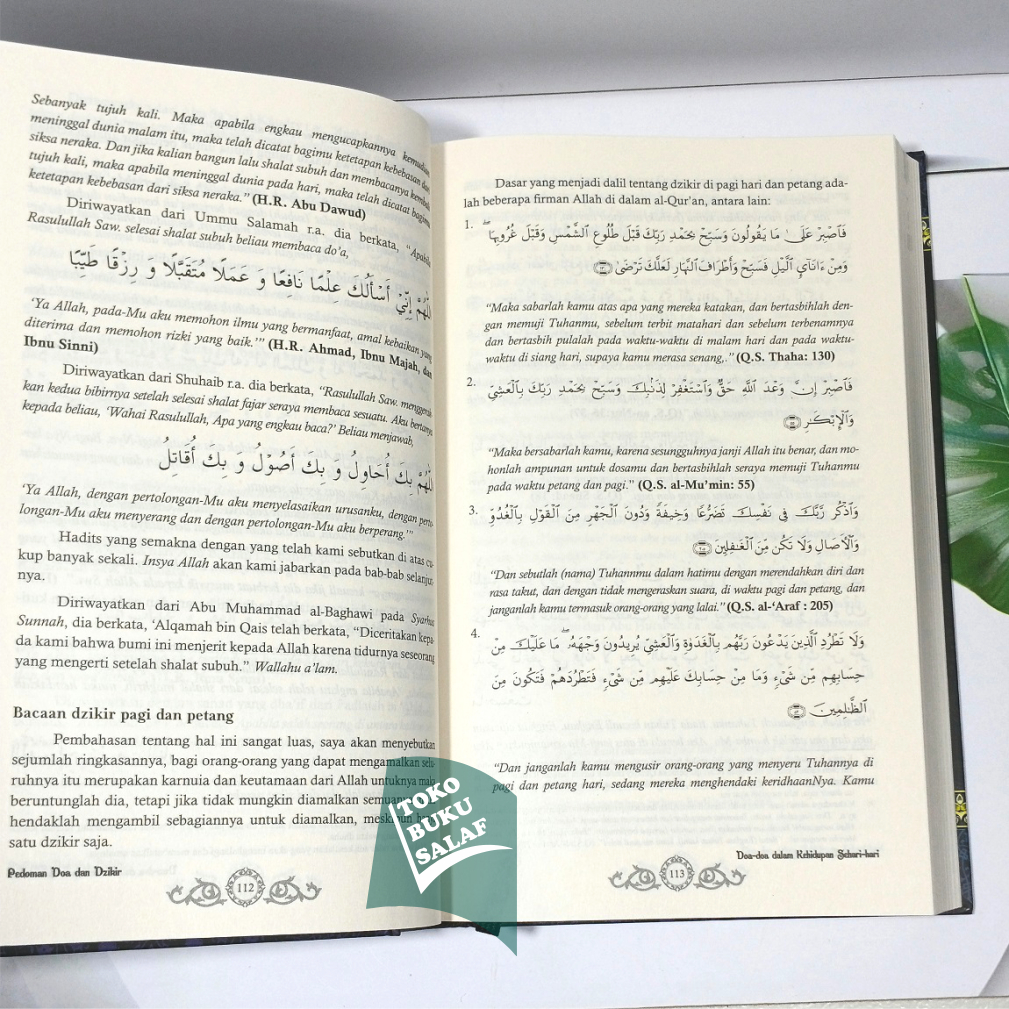 Sebanyak tujuh kali. Maka apabila engkau mengucapkannya kemudian
meninggal dunia malam itu, maka telah dicatat bagimu ketetapan kebebasan dari
siksa neraka. Dan jika kalian bangun lalu shalat subuh dan membacanya kembali
tujuh kali, maka apabila meninggal dunia pada hari, maka telah dicatat bagimu
ketetapan kebebasan dari siksa neraka." (H.R. Abu Dawud)
Diriwayatkan dari Ummu Salamah r.a. dia berkata, "Apabila
Rasulullah Saw. selesai shalat subuh beliau membaca do'a,
اَللّٰهُمَّ إِنِّيْ أَسْأَلُكَ عِلْمًا نَافِعًا وَ عَمَلًا مُتَقَبَّلًا وَ رِزْقًا طَيِّبًا
'Ya Allah, pada-Mu aku memohon ilmu yang bermanfaat, amal kebaikan yang
diterima dan memohon rizki yang baik.'" (H.R. Ahmad, Ibnu Majah, dan
Ibnu Sinni)
Diriwayatkan dari Shuhaib r.a. dia berkata, "Rasulullah Saw. menggerak-
kan kedua bibirnya setelah selesai shalat fajar seraya membaca sesuatu. Aku bertanya
kepada beliau, 'Wahai Rasulullah, Apa yang engkau baca?' Beliau menjawab,
اَللّٰهُمَّ بِكَ أُحَاوِلُ وَ بِكَ أَصُوْلُ وَ بِكَ أُقَاتِلُ
'Ya Allah, dengan pertolongan-Mu aku menyelesaikan urusanku, dengan perto-
longan-Mu aku menyerang dan dengan pertolongan-Mu aku berperang.'"
Hadits yang semakna dengan yang telah kami sebutkan di atas cu-
kup banyak sekali. Insya Allah akan kami jabarkan pada bab-bab selanjut-
nya.
Diriwayatkan dari Abu Muhammad al-Baghawi pada Syarhus
Sunnah, dia berkata, 'Alqamah bin Qais telah berkata, "Diceritakan kepa-
da kami bahwa bumi ini menjerit kepada Allah karena tidurnya seseorang
yang mengerti setelah shalat subuh." Wallahu a'lam.
Bacaan dzikir pagi dan petang
Pembahasan tentang hal ini sangat luas, saya akan menyebutkan
sejumlah ringkasannya, bagi orang-orang yang dapat mengamalkan selu-
ruhnya itu merupakan karnuia dan keutamaan dari Allah untuknya maka
beruntunglah dia, tetapi jika tidak mungkin diamalkan semuanya
hendaklah mengambil sebagiannya untuk diamalkan, meskipun hanya
satu dzikir saja.
Pedoman Doa dan Dzikir
112
Dasar yang menjadi dalil tentang dzikir di pagi hari dan petang ada-
lah beberapa firman Allah di dalam al-Qur'an, antara lain:
1. فَٱصْبِرْ عَلَىٰ مَا يَقُولُونَ وَسَبِّحْ بِحَمْدِ رَبِّكَ قَبْلَ طُلُوعِ ٱلشَّمْسِ وَقَبْلَ غُرُوبِهَا ۖ
وَمِنْ ءَانَآئِ ٱلَّيْلِ فَسَبِّحْ وَأَطْرَافَ ٱلنَّهَارِ لَعَلَّكَ تَرْضَىٰ ١٣٠
"Maka sabarlah kamu atas apa yang mereka katakan, dan bertasbihlah den-
gan memuji Tuhanmu, sebelum terbit matahari dan sebelum terbenamnya
dan bertasbih pulalah pada waktu-waktu di malam hari dan pada waktu-
waktu di siang hari, supaya kamu merasa senang,." (Q.S. Thaha: 130)
2. فَٱصْبِرْ إِنَّ وَعْدَ ٱللَّهِ حَقٌّ وَٱسْتَغْفِرْ لِذَنۢبِكَ وَسَبِّحْ بِحَمْدِ رَبِّكَ بِٱلْعَشِىِّ
وَٱلْإِبْكَـٰرِ ٥٥
"Maka bersabarlah kamu, karena sesungguhnya janji Allah itu benar, dan mo-
honlah ampunan untuk dosamu dan bertasbihlah seraya memuji Tuhanmu
pada waktu petang dan pagi." (Q.S. al-Mu'min: 55)
3. وَٱذْكُر رَّبَّكَ فِى نَفْسِكَ تَضَرُّعًا وَخِيفَةً وَدُونَ ٱلْجَهْرِ مِنَ ٱلْقَوْلِ بِٱلْغُدُوِّ
وَٱلْـَٔاصَالِ وَلَا تَكُن مِّنَ ٱلْغَـٰفِلِينَ ٢٠٥
"Dan sebutlah (nama) Tuhannmu dalam hatimu dengan merendahkan diri dan
rasa takut, dan dengan tidak mengeraskan suara, di waktu pagi dan petang, dan
janganlah kamu termasuk orang-orang yang lalai." (Q.S. al-'Araf : 205)
4. وَلَا تَطْرُدِ ٱلَّذِينَ يَدْعُونَ رَبَّهُم بِٱلْغَدَوٰةِ وَٱلْعَشِىِّ يُرِيدُونَ وَجْهَهُۥ ۖ مَا عَلَيْكَ مِنْ
حِسَابِهِم مِّن شَىْءٍ وَمَا مِنْ حِسَابِكَ عَلَيْهِم مِّن شَىْءٍ فَتَطْرُدَهُمْ فَتَكُونَ مِنَ
ٱلظَّـٰلِمِينَ ٥٢
"Dan janganlah kamu mengusir orang-orang yang menyeru Tuhannya di
pagi dan petang hari, sedang mereka menghendaki keridhaanNya. Kamu
Doa-doa dalam Kehidupan Sehari-hari
113
TOKO
BUKU
SALAF